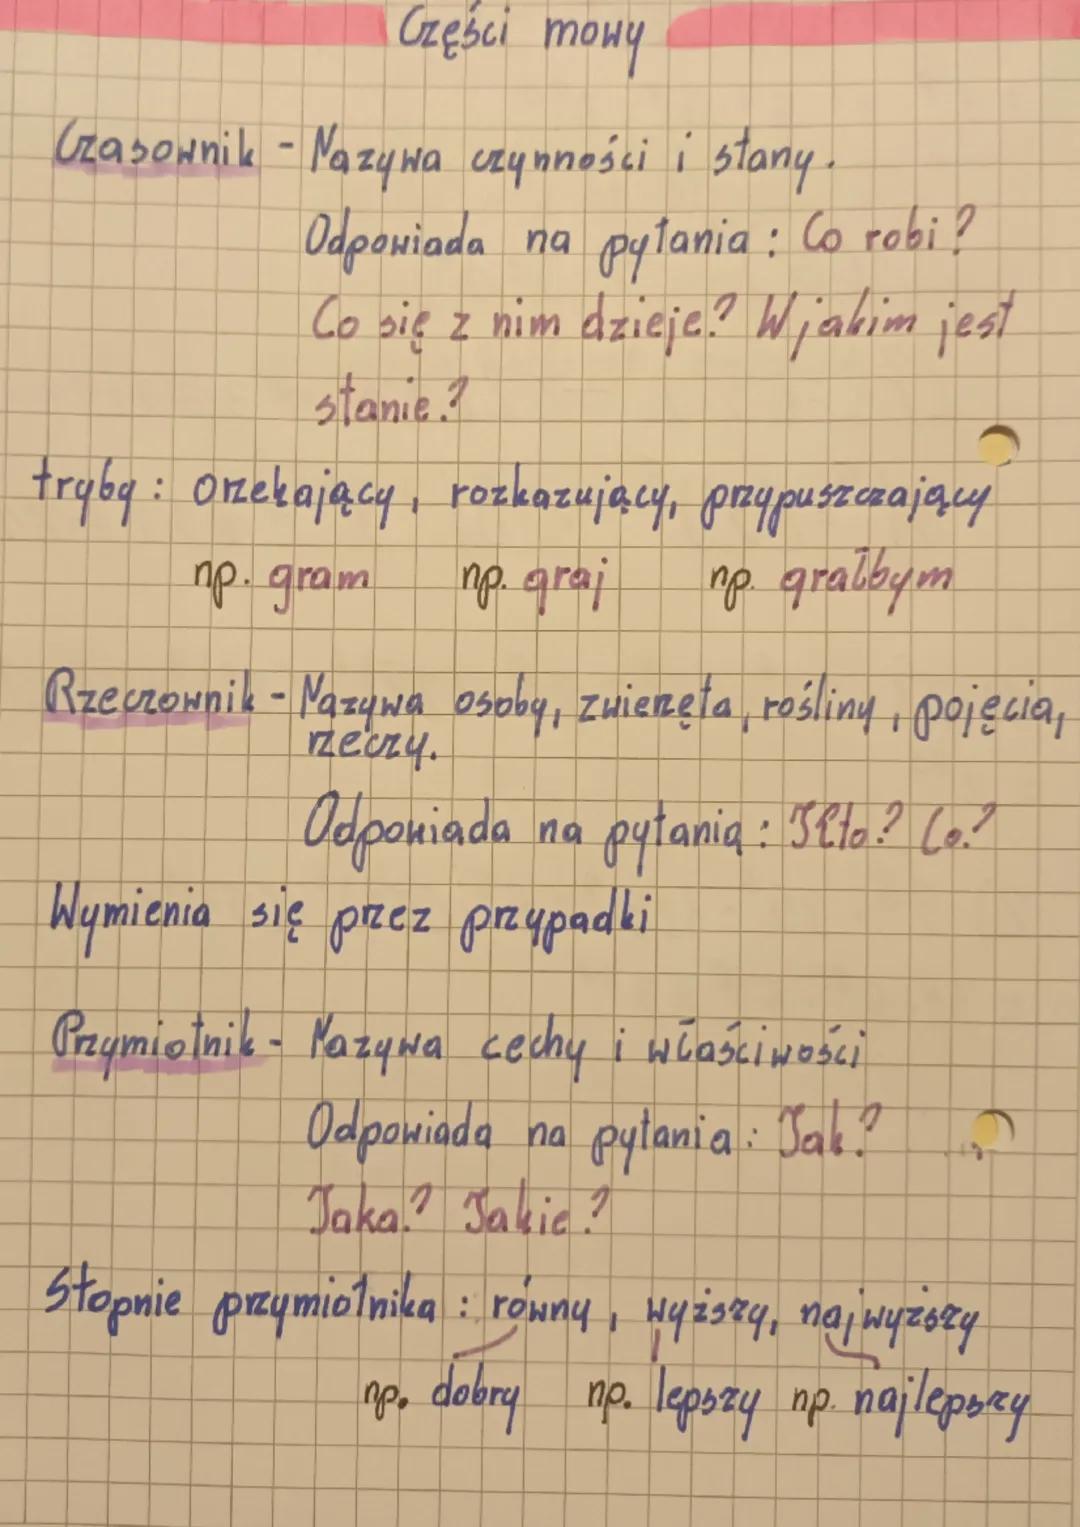 Części mowy
Czasownik - Nazywa czynności i stany.
Odpowiada na pytania: Co robi?
Co się z nim dzieje? W jakim jest
stanie?
tryby: orzekający, rozkazujący, przypuszczający
np. gram np. graj np. grałbym
Rzeczownik - Nazywa osoby, zwierzęta, rośliny, pojęcia,
rzeczy.
Odpowiada na pytania: Kto? Co?
Wymienia się przez przypadki
Przymiotnik - Nazywa cechy i właściwości
Odpowiada na pytania: Jak?
Jaka? Jakie?
Stopnie przymiotnika: równy, wyższy, najwyższy
np. dobry np. lepszy np. najlepszy